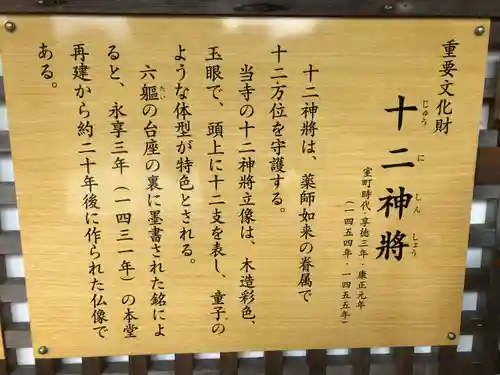 重要文化財
十二神将
じゅう に しん しょう
室町時代・享徳三年・康正元年
（一四五四年・一四五五年）
十二神将は、薬師如来の眷属で
十二万位を守護する。
当寺の十二神将立像は、木造彩色、
玉眼で、頭上に十二支を表し、童子の
ような体型が特色とされる。
六軀の台座の裏に墨書された銘によ
たい
ると、永享三年（一四三一年）の本堂
再建から約二十年後に作られた仏像で
ある。